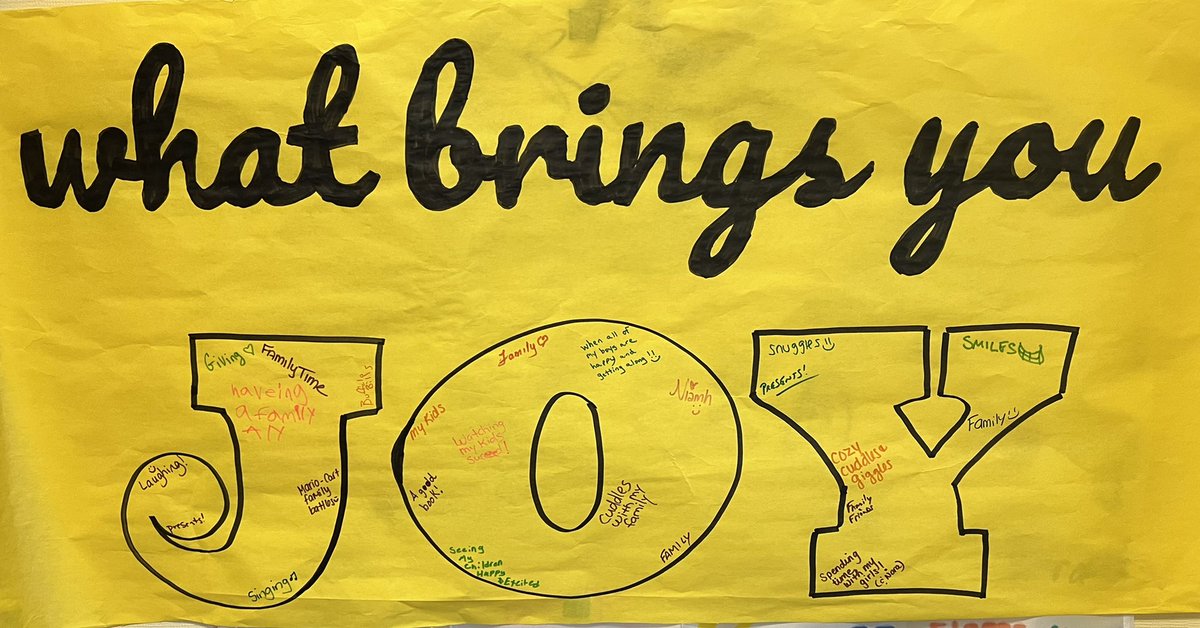 what brings you
JOY
Giving
FAMILY TIME
haveing
a family
Buffalo
Bills
Laughing!
Presents!
Mario-Cart
family
battles
Singing
Family
when all of
my boys are
happy and
getting along!!
Niamh
My Kids
Watching
my Kids
Succeed!!
A good
book!
Cuddles
with my
family
Seeing
My
Children
Happy
& Excited
FAMILY
Snuggles
PRESENTS!
SMILES
Family
COZY
cuddles &
giggles
Family
Friends
Spending
time
with my
girls!!
(& Nora)